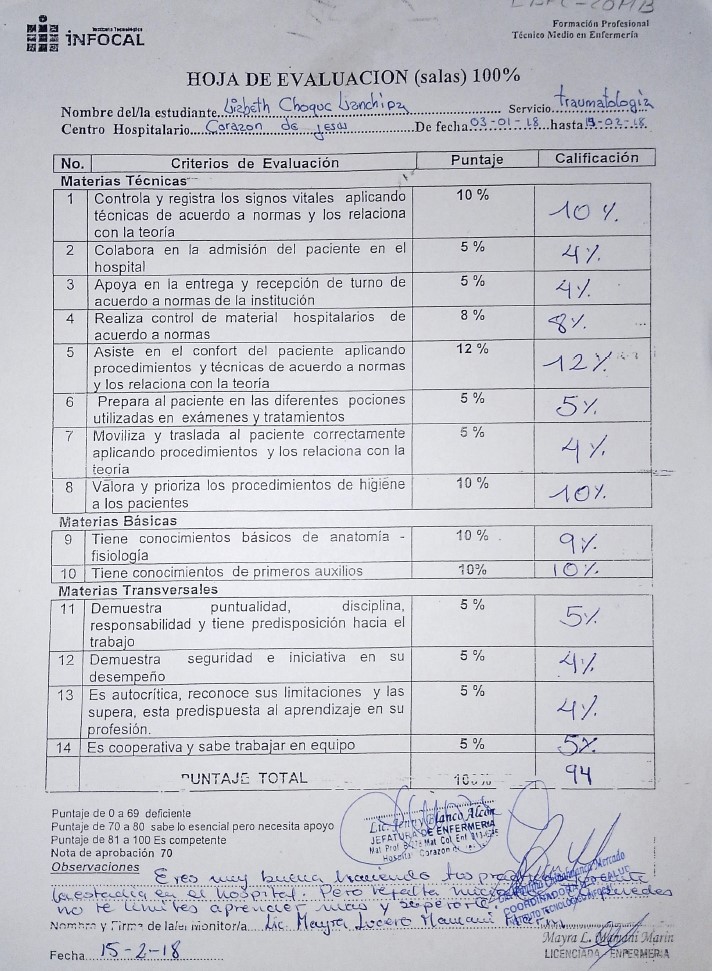 INFOCAL
Formación Profesional
Técnico Medio en Enfermería
HOJA DE EVALUACION (salas) 100%
Nombre del/la estudiante Lizbeth Choque Lianchipa Servicio traumatología
Centro Hospitalario Corazon de Jesus De fecha 03-01-18 hasta 19-02-18
No. Criterios de Evaluación Puntaje Calificación
Materias Técnicas
1 Controla y registra los signos vitales aplicando 10 % 10 %
técnicas de acuerdo a normas y los relaciona
con la teoría
2 Colabora en la admisión del paciente en el 5 % 4%
hospital
3 Apoya en la entrega y recepción de turno de 5 % 4%
acuerdo a normas de la institución
4 Realiza control de material hospitalarios de 8 % 8%
acuerdo a normas
5 Asiste en el confort del paciente aplicando 12 % 12%
procedimientos y técnicas de acuerdo a normas
y los relaciona con la teoría
6 Prepara al paciente en las diferentes pociones 5 % 5%
utilizadas en exámenes y tratamientos
7 Moviliza y traslada al paciente correctamente 5 % 4%
aplicando procedimientos y los relaciona con la
teoría
8 Valora y prioriza los procedimientos de higiene 10 % 10%
a los pacientes
Materias Básicas
9 Tiene conocimientos básicos de anatomía - 10 % 9%
fisiología
10 Tiene conocimientos de primeros auxilios 10% 10%
Materias Transversales
11 Demuestra puntualidad, disciplina, 5 % 5%
responsabilidad y tiene predisposición hacia el
trabajo
12 Demuestra seguridad e iniciativa en su 5 % 4%
desempeño
13 Es autocrítica, reconoce sus limitaciones y las 5 % 4%
supera, esta predispuesta al aprendizaje en su
profesión.
14 Es cooperativa y sabe trabajar en equipo 5 % 5%
PUNTAJE TOTAL 100% 94
Puntaje de 0 a 69 deficiente
Puntaje de 70 a 80 sabe lo esencial pero necesita apoyo
Puntaje de 81 a 100 Es competente
Nota de aprobación 70
Lic. Jenny Blanco Alcón
JEFATURA DE ENFERMERIA
Hospital Corazon de
Observaciones Eres muy buena haciendo tus
en el hospital. Pero te falta puedes
no te limites aprender mas y
Nombre y Firma de la/el monitor/a Lic. Mayra Lucero Mamani
Mayra L. Mamani Marin
LICENCIADA ENFERMERIA
Fecha 15-2-18